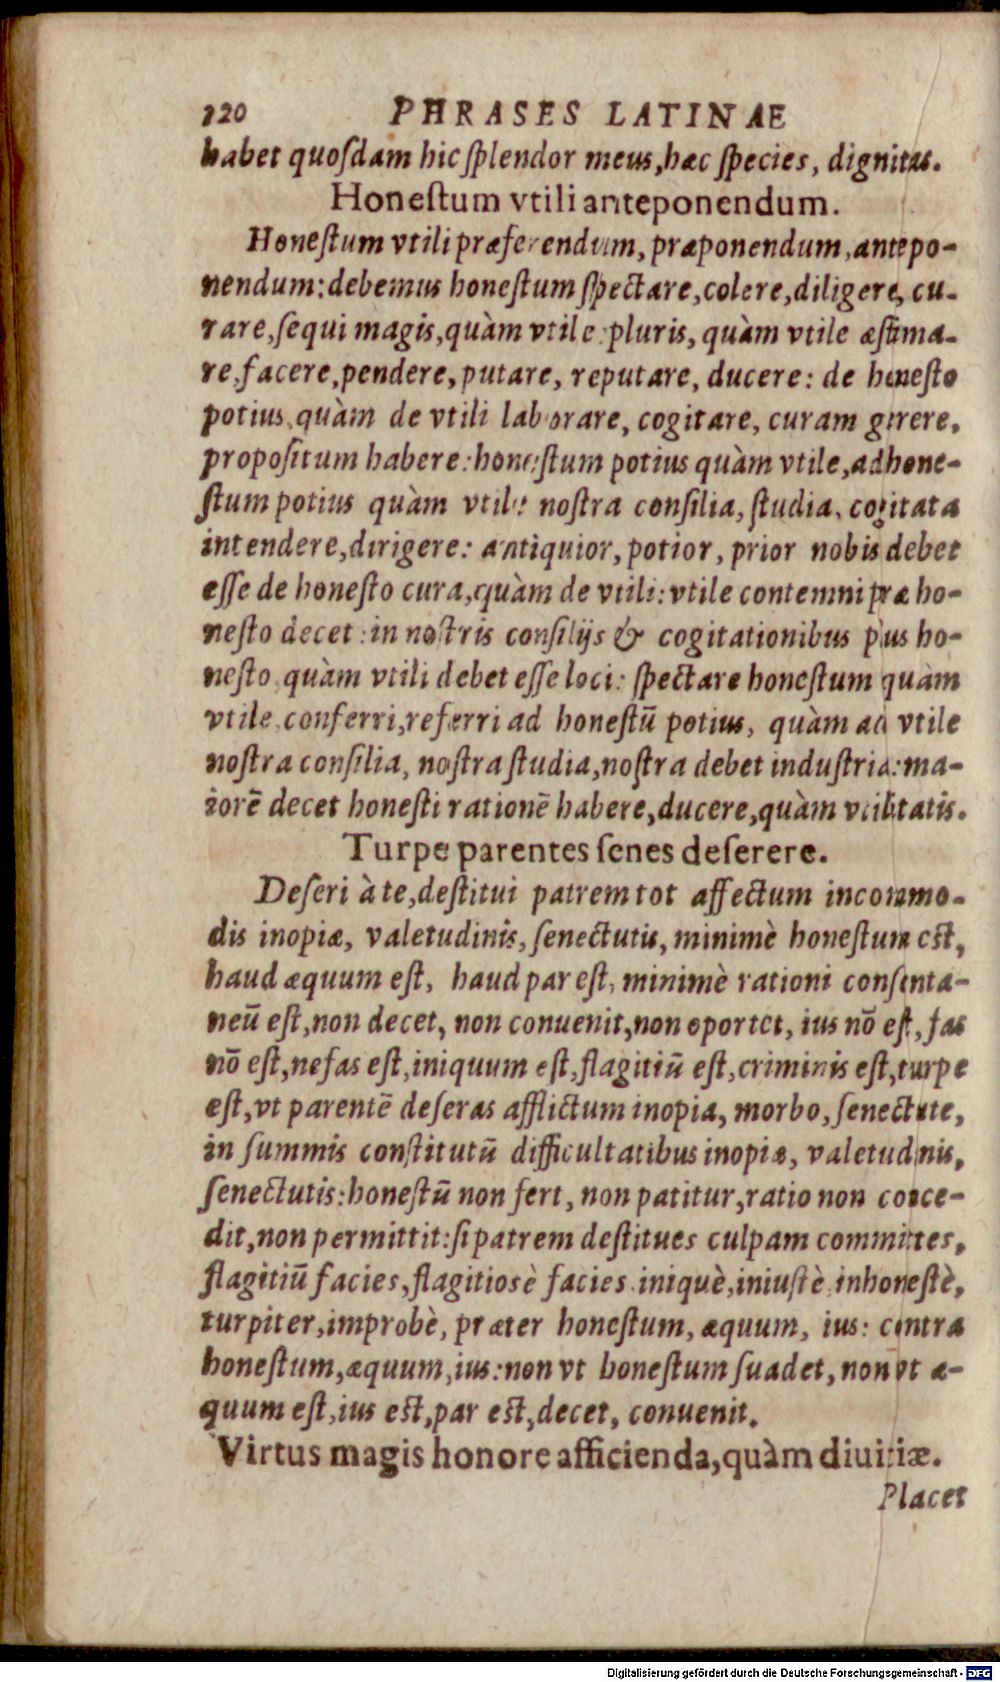 120 PHRASES LATINAE
habet quoſdam hic ſplendor meus, hæc ſpecies, dignitas.
Honeſtum vtili anteponendum.
Honeſtum vtili præferendum, præponendum, antepo-
nendum: debemus honeſtum ſpectare, colere, diligere, cu-
rare, ſequi magis, quàm vtile: pluris, quàm vtile æſtima-
re, facere, pendere, putare, reputare, ducere: de honeſto
potius, quàm de vtili laborare, cogitare, curam gerere,
propoſitum habere: honeſtum potius quàm vtile, ad hone-
ſtum potius quàm vtile noſtra conſilia, ſtudia, cogitata
intendere, dirigere: antiquior, potior, prior nobis debet
eſſe de honeſto cura, quàm de vtili: vtile contemni præ ho-
neſto decet: in noſtris conſilijs & cogitationibus plus ho-
neſto, quàm vtili debet eſſe loci: ſpectare honeſtum quàm
vtile, conferri, referri ad honeſtū potius, quàm ad vtile
noſtra conſilia, noſtra ſtudia, noſtra debet induſtria: ma-
iorē decet honeſti rationē habere, ducere, quàm vtilitatis.
Turpe parentes ſenes deſerere.
Deſeri à te, deſtitui patrem tot affectum incommo-
dis inopiæ, valetudinis, ſenectutis, minimè honeſtum eſt,
haud æquum eſt, haud par eſt, minimè rationi conſenta-
neū eſt, non decet, non conuenit, non oportet, ius nō eſt, fas
nō eſt, nefas eſt, iniquum eſt, flagitiū eſt, criminis eſt, turpe
eſt, vt parentē deſeras afflictum inopia, morbo, ſenectute,
in ſummis conſtitutū difficultatibus inopiæ, valetudinis,
ſenectutis: honeſtū non fert, non patitur, ratio non conce-
dit, non permittit: ſi patrem deſtitues culpam committes,
flagitiū facies, flagitiosè facies, iniquè, iniuſtè, inhoneſtè,
turpiter, improbè, præter honeſtum, æquum, ius: contra
honeſtum, æquum, ius: non vt honeſtum ſuadet, non vt æ-
quum eſt, ius eſt, par eſt, decet, conuenit.
Virtus magis honore afficienda, quàm diuitiæ.
Placet
Digitalisierung gefördert durch die Deutsche Forschungsgemeinschaft - DFG